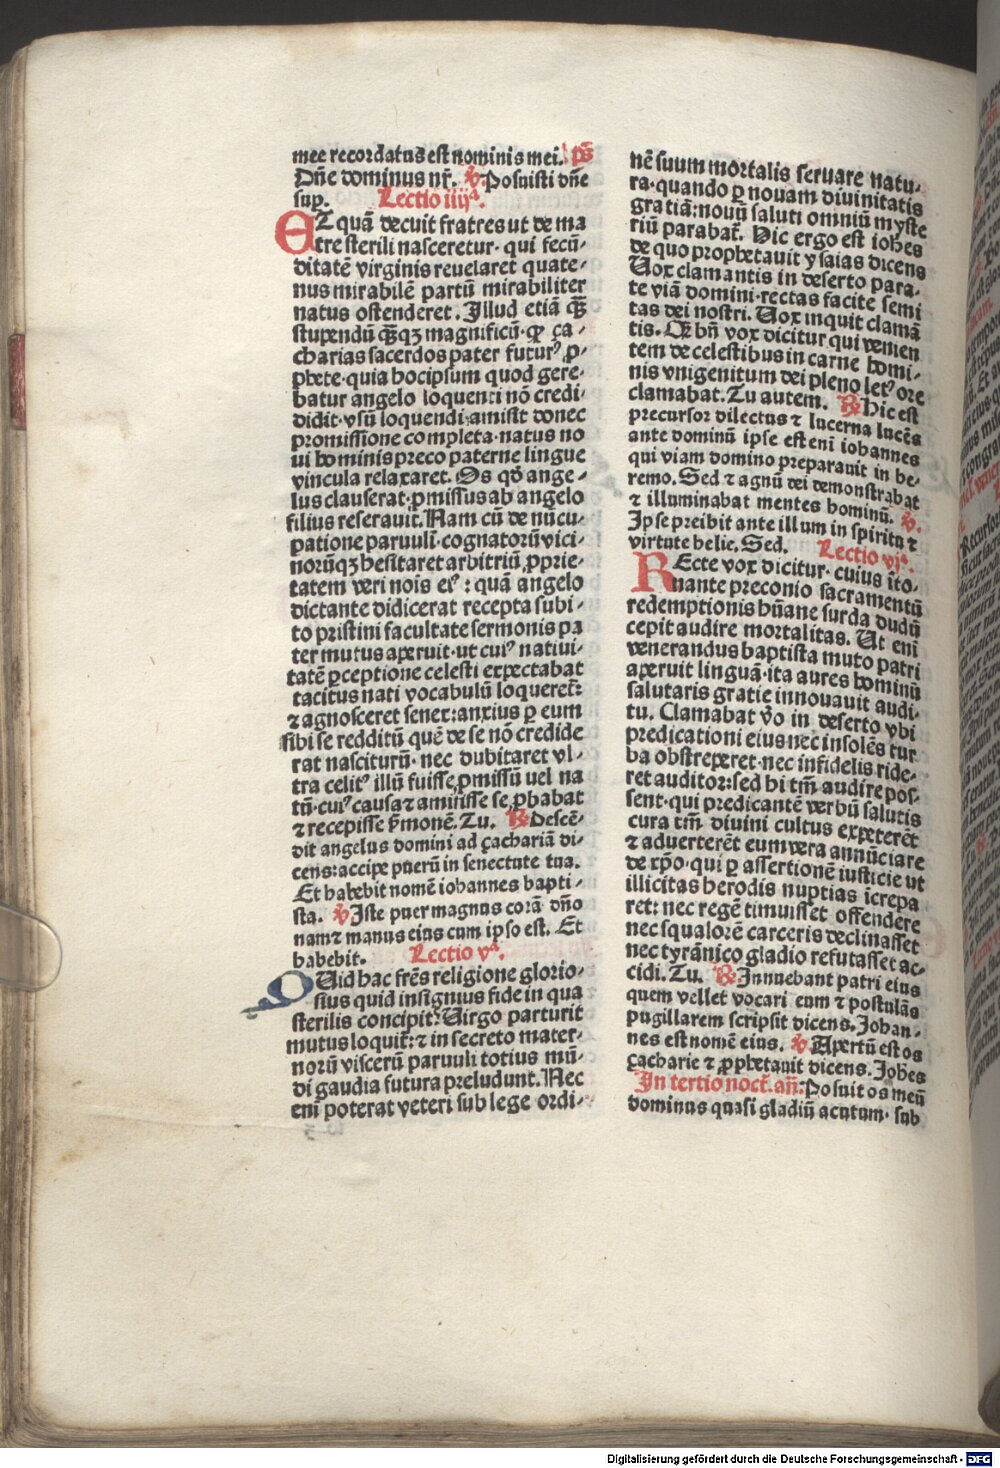 mee recordatus est nominis mei. ps̃
Dñe dominus nr̃. ꝟ. Posuisti dñe
sup. Lectio iiijª.
ET quã decuit fratres ut de ma
tre sterili nasceretur· qui fecũ-
ditatẽ virginis reuelaret quate-
nus mirabilẽ partũ mirabiliter
natus ostenderet. Illud etiã q̃ȝ
stupendũ q̃ȝqȝ magnificũ· ꝙ ça-
charias sacerdos pater futurꝰ ꝓ-
phete· quia hocipsum quod gere-
batur angelo loquenti nõ credi
didit· vsũ loquendi amisit donec
promissione completa· natus no
ui hominis preco paterne lingue
vincula relaxaret. Os qđ ange-
lus clauserat· ꝓmissus ab angelo
filius reserauit. Nam cũ de nũcu-
patione paruuli· cognatorũ vici-
norũqȝ hesitaret arbitriũ, ꝓprie-
tatem veri nois eiꝰ: quã angelo
dictante didicerat recepta subi-
to pristini facultate sermonis pa
ter mutus aperuit· ut cuiꝰ natiui-
tatẽ ꝑceptione celesti expectabat
tacitus nati vocabulũ loqueret̃:
⁊ agnosceret senex: anxius ꝑ eum
sibi se redditũ quẽ de se nõ credide
rat nasciturũ· nec dubitaret vl-
tra celitꝰ illũ fuisse ꝓmissũ uel na
tũ· cuiꝰ causa ⁊ amisisse se ꝓbabat
⁊ recepisse ẜmonẽ. Tu. ℟ Descẽ-
dit angelus domini ad çachariã di-
cens: accipe puerũ in senectute tua.
Et habebit nomẽ iohannes bapti-
sta. ꝟ Iste puer magnus corã dño
nam ⁊ manus eius cum ipso est. Et
habebit. Lectio vª.
QUid hac fr̃es religione glorio-
sius quid insignius fide in qua
sterilis concipit? Uirgo parturit
mutus loquit̃: ⁊ in secreto mater-
norũ viscerũ paruuli totius mũ-
di gaudia futura preludunt. Nec
eni poterat veteri sub lege ordi-
nẽ suum mortalis seruare natu-
ra· quando ꝑ nouam diuinitatis
gratiã: nouũ saluti omniũ myste
riũ parabat̃. Hic ergo est iohes
de quo prophetauit ysaias dicens
Uox clamantis in deserto para-
te viã domini· rectas facite semi
tas dei nostri. Uox inquit clamã
tis. Qr̃ bñ vox dicitur qui venien
tem de celestibus in carne homi-
nis vnigenitum dei pleno letꝰ ore
clamabat. Tu autem. ℟ Hic est
precursor dilectus ⁊ lucerna lucẽs
ante dominũ ipse est enĩ iohannes
qui viam domino preparauit in he-
remo. Sed ⁊ agnũ dei demonstrabat
⁊ illuminabat mentes hominũ. ꝟ.
Ipse preibit ante illum in spiritu ⁊
virtute helie. Sed. Lectio vjª.
REcte vox dicitur· cuius ĩto-
nante preconio sacramentũ
redemptionis hũane surda dudũ
cepit audire mortalitas. Ut enĩ
venerandus baptista muto patri
aperuit linguã· ita aures hominũ
salutaris gratie innouauit audi-
tu. Clamabat v̊o in deserto vbi
predicationi eius nec insolẽs tur
ba obstreperet· nec infidelis ride-
ret auditor: sed hi tm̃ audire pos-
sent· qui predicantẽ verbũ salutis
cura tm̃ diuini cultus expeterẽt
⁊ aduerterẽt eum vera annũciare
de xp̃o· qui ꝑ assertionẽ iusticie ut
illicitas herodis nuptias ĩcrepa
ret: nec regẽ timuisset offendere
nec squalorẽ carceris declinasset
nec tyrãnico gladio refutasset ac-
cidi. Tu. ℟ Innuebant patri eius
quem vellet vocari eum ⁊ postulãs
pugillarem scripsit dicens. Johan-
nes est nomẽ eius. ꝟ. Apertũ est os
çacharie ⁊ ꝓphetauit dicens. Johes
In tertio noct̃. añ: Posuit os meũ
dominus quasi gladiũ acutum· sub
Digitalisierung gefördert durch die Deutsche Forschungsgemeinschaft - DFG